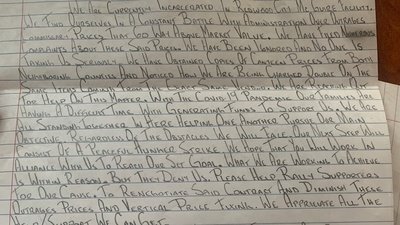 We Are Currently Incarcerated In Redwood City Maguire Facility.
We Find Ourselves In A Constant Battle With Administration Over Outrages
Commisary Prices That Go Way Above Market Value. We Have Filed Numerous
Complaints About These Said Prices. We Have Been Ignored And No One Is
Taking Us Seriously. We Have Obtained Copies Of Canteen Prices From Both
Neighboring Counties And Noticed How We Are Being Charged Double On The
Same Items Coming From The Exact Same Vendor. We Are Reaching Out
For Help On This Matter. With The Covid 19 Pandemic Our Families Are
Having A Difficult Time With Generating Funds To Support Us. We Are
All Standing Together In Here Helping One Another Pursue Our Main
Objective Regardless Of The Obstacles We Will Face. Our Next Step Will
Consist Of A Peaceful Hunger Strike. We Hope That You Will Work In
Alliance With Us To Reach Our Set Goal. What We Are Working To Achieve
Is Within Reason. But They Deny Us. Please Help Rally Supporters
For Our Cause. To Renegotiate Said Contract And Diminish These
Outrages Prices And Vertical Price Fixing. We Appriciate All The
Help/Support We Can Get.